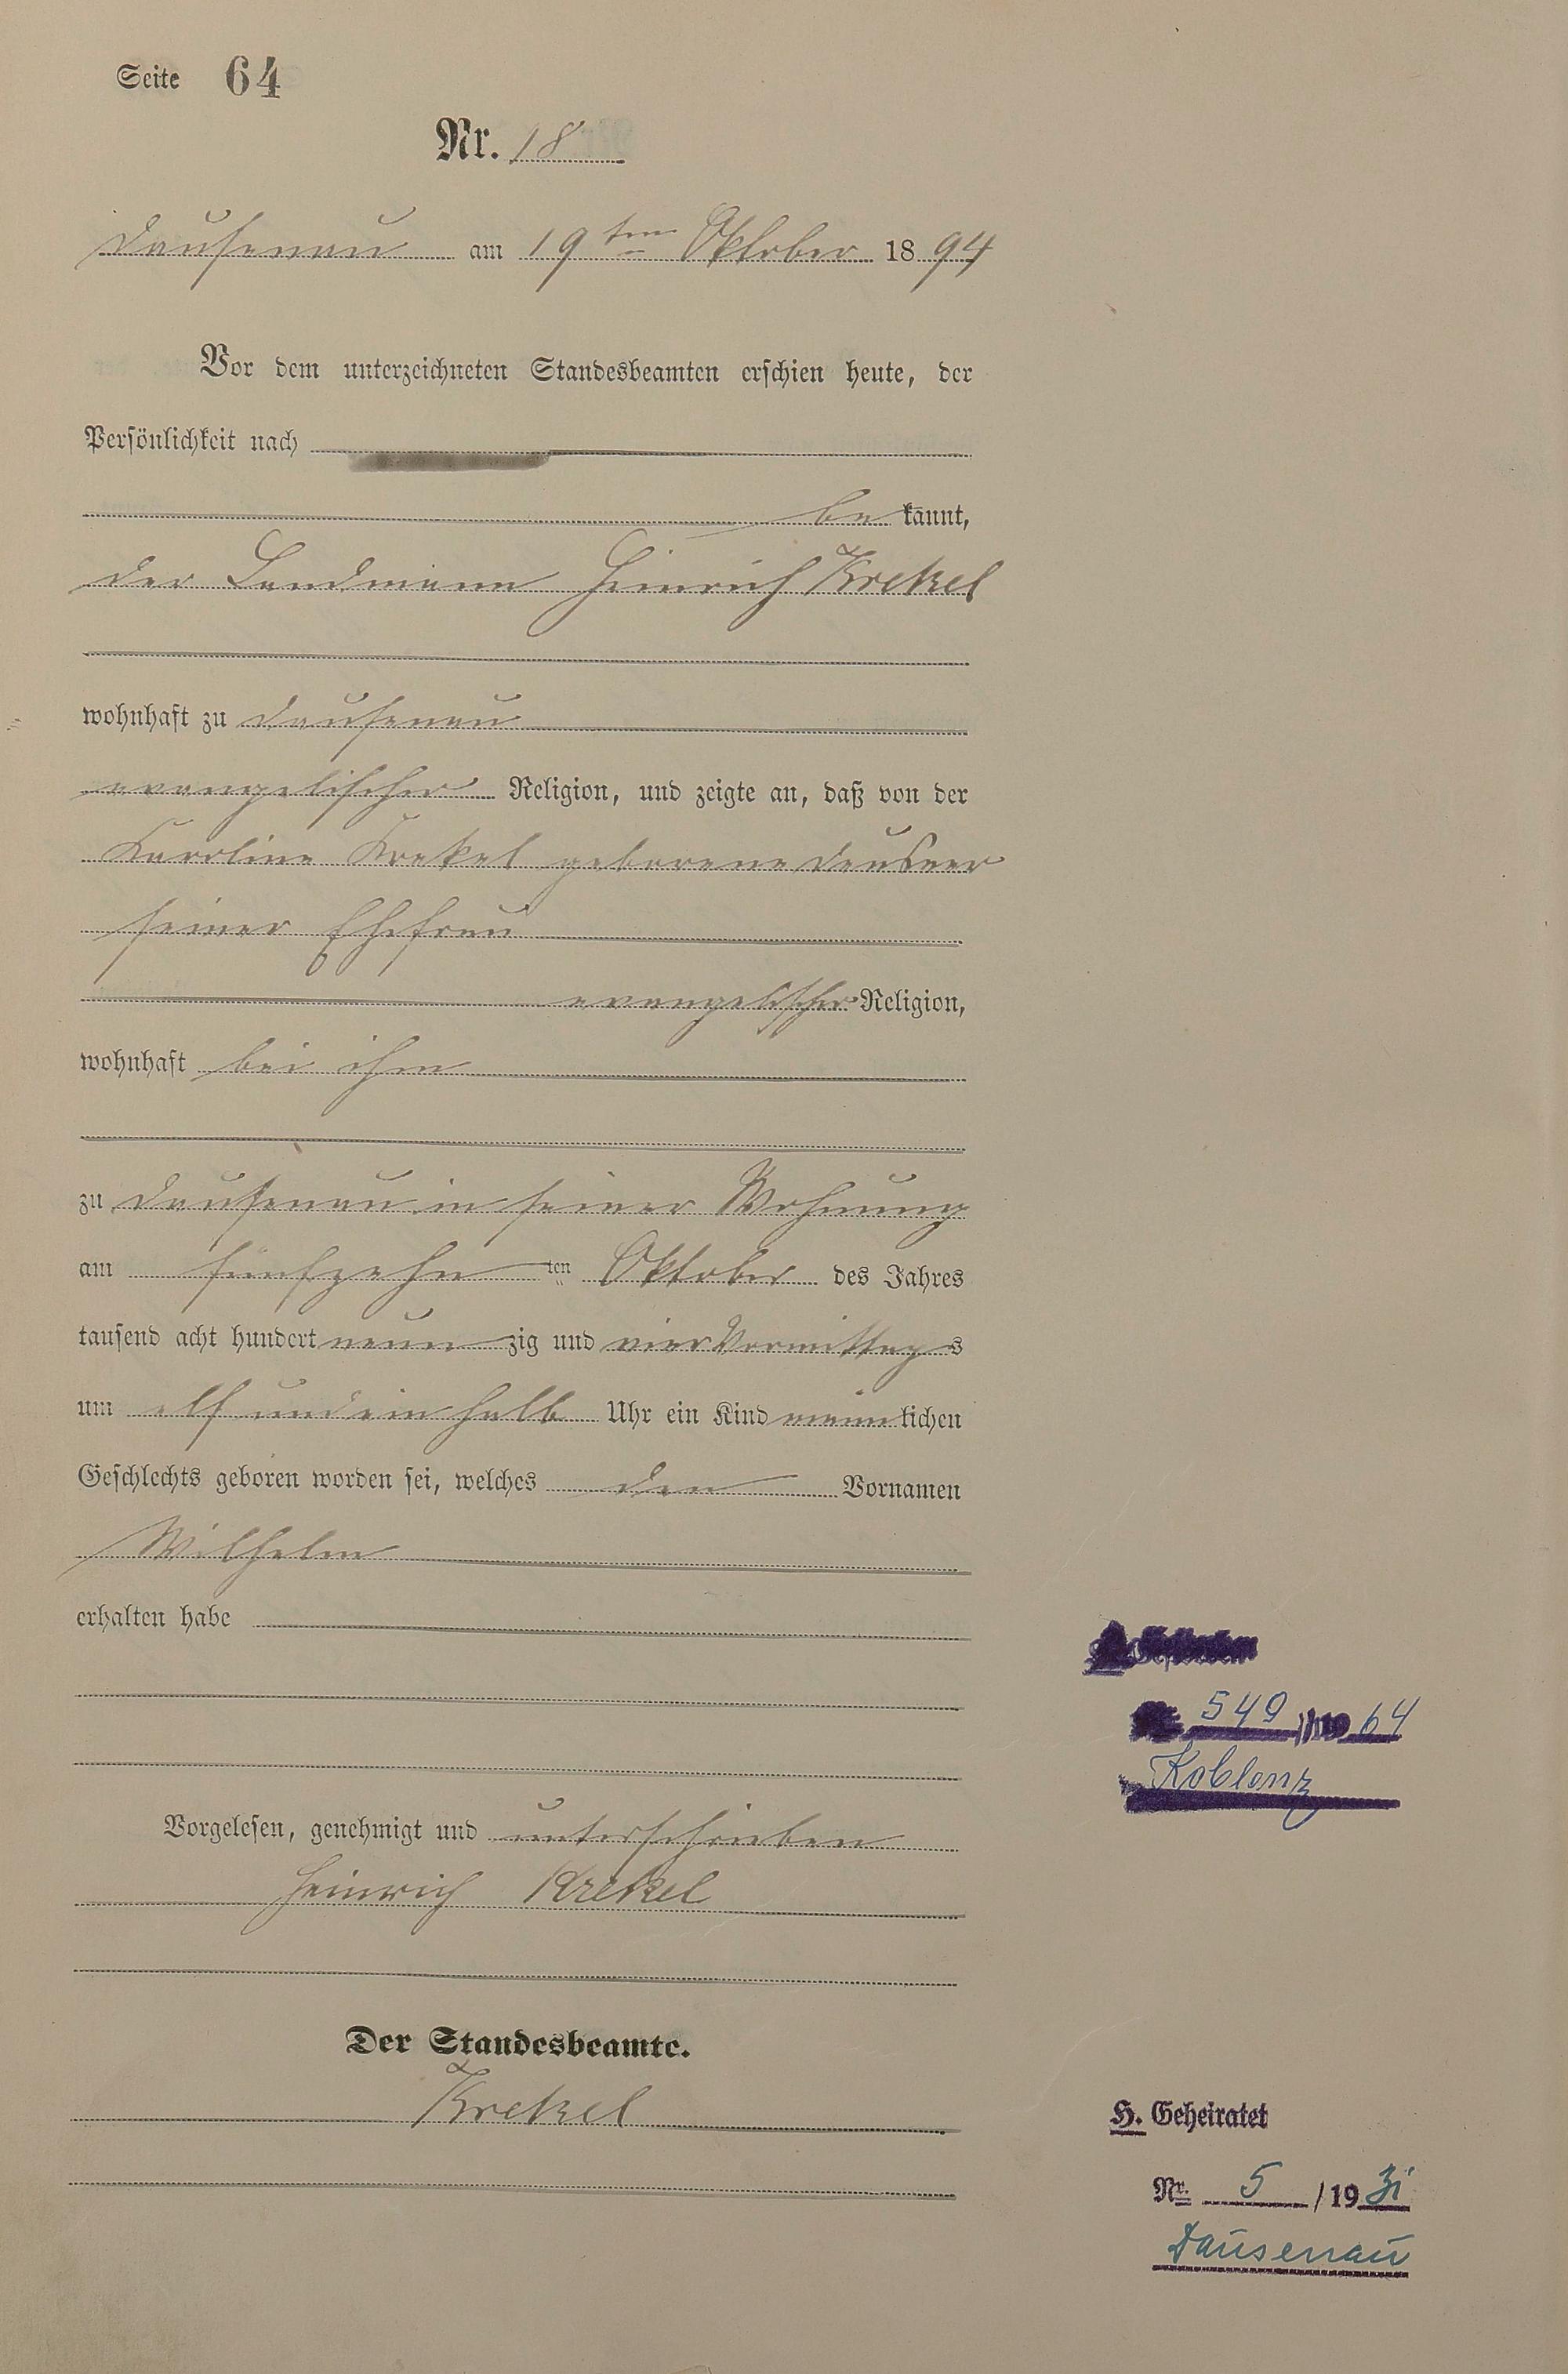 Seite 64
Nr. 18
Dausenau am 19ten Oktober 1894
Vor dem unterzeichneten Standesbeamten erschien heute, der
Persönlichkeit nach
be kannt,
der Landmann Heinrich Krekel
wohnhaft zu Dausenau
evangelischer Religion, und zeigte an, daß von der
Karoline Krekel geborene Deusner
seiner Ehefrau
evangelischer Religion,
wohnhaft bei ihm
zu Dausenau in seiner Wohnung
am fünfzehn ten Oktober des Jahres
tausend acht hundert neun zig und vier Vormittags
um elf und ein halb Uhr ein Kind männlichen
Geschlechts geboren worden sei, welches den Vornamen
Wilhelm
erhalten habe
Vorgelesen, genehmigt und unterschrieben
Heinrich Krekel
Der Standesbeamte.
Krekel
Gestorben
549 /19 64
Koblenz
H. Geheiratet
Nr. 5 /19 31
Dausenau